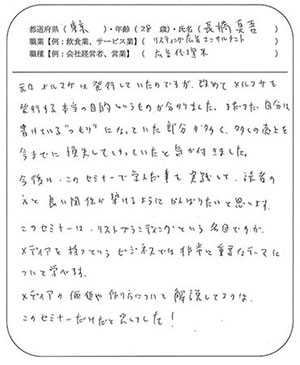 都道府県( 東京 )・年齢( 28 歳)・氏名( 長橋真吾 )
職業【例:飲食業、サービス業】( リスティング広告コンサルタント )
職種【例:会社経営者、営業】( 広告代理業 )
元々メルマガは発行していたのですが、改めてメルマガを
発行する本当の目的というものが分かりました。まだまだ自分は
書けている"つもり"になっていた部分が多く、多くの売上を
今までに損失してしまっていたと気が付きました。
今後は、このセミナーで学んだ事を実践して、読者の
方と良い関係が築けるようにがんばりたいと思います。
このセミナーは、リストブランディングという名目ですが、
メディアを持つというビジネスでは非常に重要なテーマに
ついて学べます。
メディアの価値や作り方について解説してるのは、
このセミナーだけだと思いました!